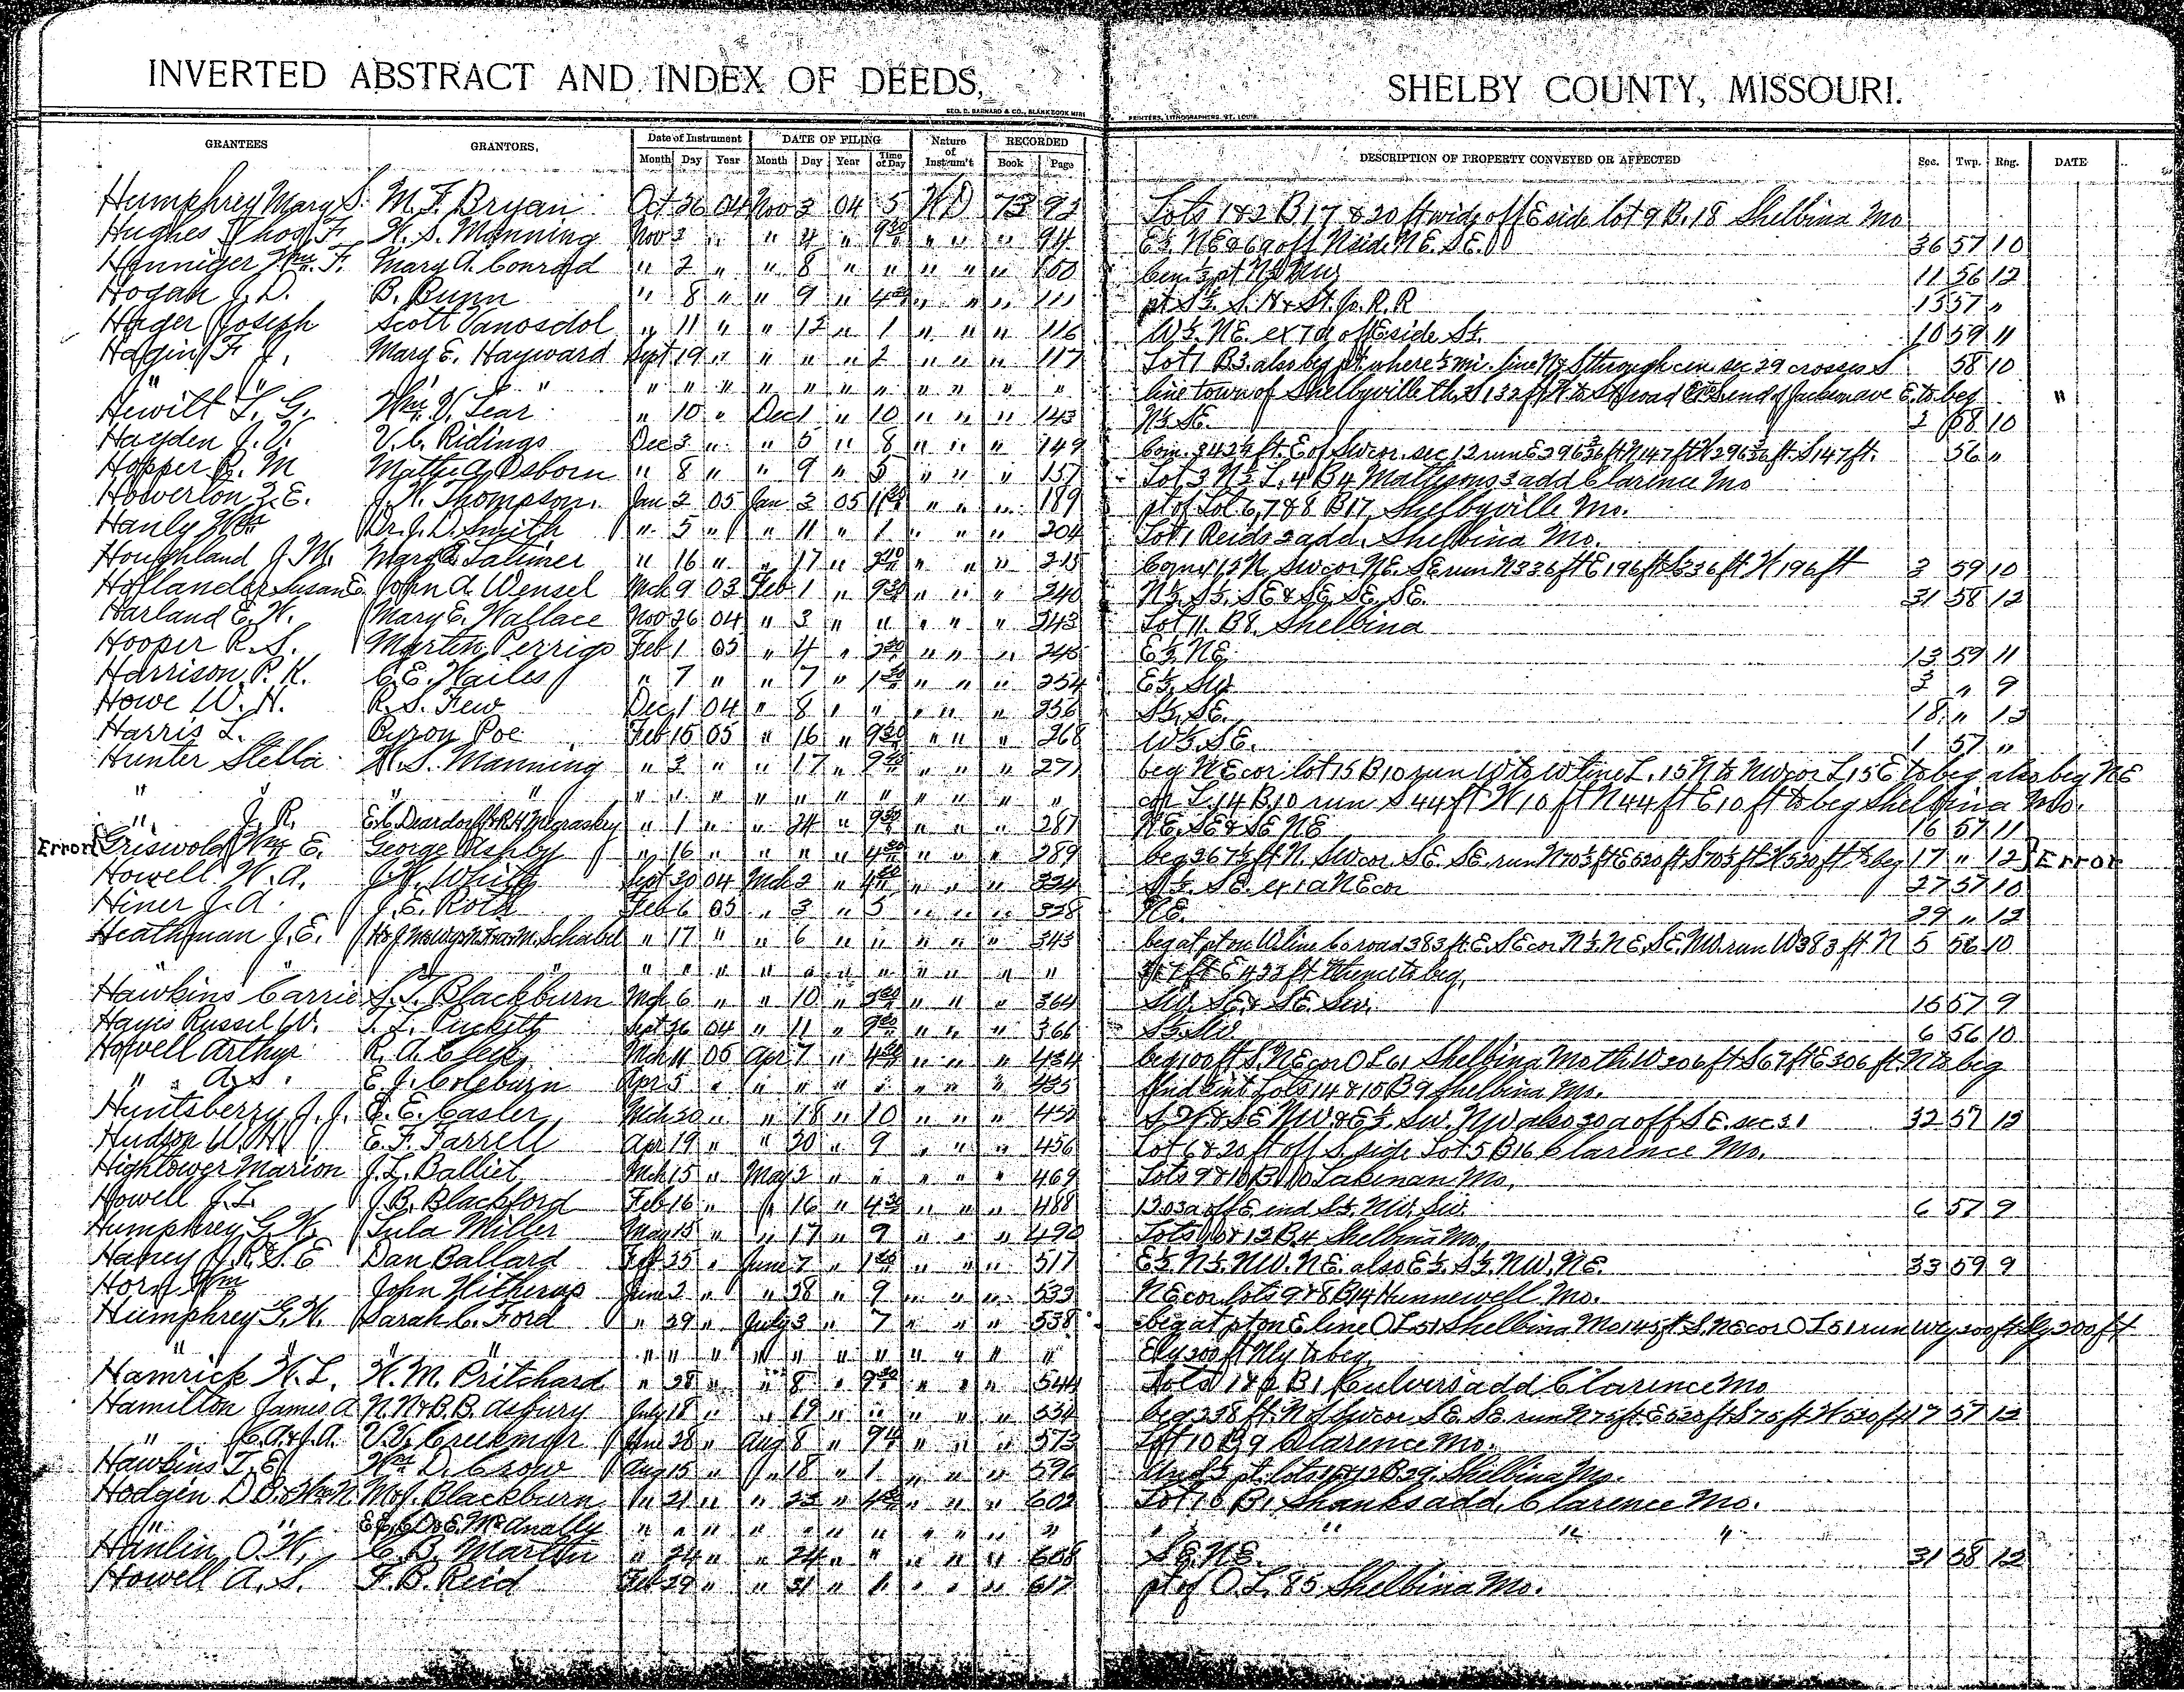 INVERTED ABSTRACT AND INDEX OF DEEDS, SHELBY COUNTY, MISSOURI.
GEO. D. BARNARD & CO., BLANK BOOK PRINTERS, LITHOGRAPHERS, ST. LOUIS.
GRANTEES GRANTORS, Date of Instrument DATE OF FILING Nature of Instrum't RECORDED DESCRIPTION OF PROPERTY CONVEYED OR AFFECTED Sec. Twp. Rng. DATE
Month Day Year Month Day Year Time of Day Book Page
Humphrey Mary S. M. F. Bryan Oct 26 04 Nov 3 04 5 WD 73 92 Lots 1 & 2 B 17 & 20 ft wide off E side lot 9 B. 18 Shelbina Mo
Hughes Thos F. W. S. Manning Nov 3 " " 4 " 9 30 " " " 94 E½ NE & 6 a off N side NE. SE. 36 57 10
Henniger Wm. F. Mary A. Conrad " 2 " " 8 " " " " " 100 11 56 12
Hogan J. D. B. Bunn " 8 " " 9 " 4 30 " " " 111 pt S½ S. H & St. Jo. R. R 15 57 "
Hager Joseph Scott Vanosdol " 11 " " 12 " 1 " " " 116 W½ NE. ex 7 a off E side S½. 10 59 11
Hagin F. J. Mary E. Hayward Sept 19 " " " " 2 " " " 117 Lot 1 B 3. also beg pt. where ½ mi. line N & S through cen. sec 29 crosses S 58 10
" " " " " " " " " " " " " " " line town of Shelbyville th S 132 ft W to St road E to beg "
Hewitt L. G. Wm. V. Lear " 10 " Dec 1 " 10 " " " 143 N½ SE. 2 58 10
Hayden J. V. V. C. Ridings Dec 3 " " 5 " 8 " " " 149 Com. 2424 ft. E of SW cor. sec 12 run E 296 ft N 147 ft W 296 ft. S 147 ft. 56 "
Hopper R. M Osborn " 8 " " 9 " 5 " " " 157 Lot 3 N½ L. 4 B 4 Mattisons 3 add Clarence Mo
Howerton Z. E. J. W. Thompson. Jan 2 05 Jan 3 05 " " " 189 pt of Lot 6, 7 & 8 B 17 Shelbyville Mo.
Hanly Dr. J. D. Smith " 5 " " 11 " 1 " " " 204 Lot 1 Reids 2 add. Shelbina Mo.
Houghland J. M. Mary E. Latimer " 16 " " 17 " " " " 215 SW cor NE. SE run N 336 ft E 196 ft S 336 ft W 196 ft 3 59 10
Hollander Susan E. John A. Wensel Mch 9 03 Feb 1 " 9 30 " " " 240 N½ S½ SE & SE SE. SE. 31 58 12
Harland E. W. Mary E. Wallace Nov 26 04 " 3 " " " " " 243 Lot 11. B 8. Shelbina
Hooper R. S. Martin Perrigo Feb 1 05 " 4 " " " " 245 E½ NE 13 59 11
Harrison P. K. C. E. Wailes " 7 " " 7 " 1 30 " " " 254 E½ SW 3 " 9
Howe W. H. R. S. Few Dec 1 04 " 8 " " " " " 256 S½ SE. 18 " 12
Harris L. Byron Poe Feb 15 05 " 16 " 9 30 " " " 268 W½ SE. 1 57 "
Hunter Stella W. S. Manning " 3 " " 17 " 9 30 " " " 271 beg NE cor lot 15 B 10 run W to W line L. 15 N to NW cor L 15 E to beg also beg NE
" " " " " " " " " " " " " " cor L. 14 B. 10 run S 44 ft W 10 ft N 44 ft E 10 ft to beg Shelbina Mo.
" J. R. E. C. Deardorff & " 1 " " 24 " 9 30 " " " 287 NE. SE & SE NE 16 57 11
Error Griswold Wm E. George Ashby " 16 " " " " 4 30 " " " 289 beg 267½ ft N. SW cor. SE SE run N 70½ ft E 520 ft S 70½ ft W 520 ft to beg 17 " 12 Error
Howell W. A. J. W. White Sept 20 04 Mch 2 " 4 30 " " " 324 S½ SE. ex 1 a NE cor 27 57 10
Hiner J. A. J. E. Roth Feb 6 05 " 3 " 5 " " " 328 NE. 29 " 12
Heathman J. E. " 17 " " 6 " " " " " 343 beg at pt on W line Co road 383 ft. E. SE cor N½ NE. SE. NW. run W 383 ft N 5 56 10
" " " " " " " " " " " " " " ft E 433 ft thence to beg.
Hawkins Carrie S. T. Blackburn Mch 6 " " 10 " " " " 364 SW. SE & SE. SW. 15 57 9
Hayes Russel W. T. L. Puckett Sept 26 04 " 11 " 9 30 " " " 366 S½ SW 6 56 10
Howell Arthur R. A. Cleek Mch 11 05 Apr 7 " 4 30 " " " 434 beg 100 ft S. NE cor O L 61 Shelbina Mo th W 306 ft S 67 ft E 306 ft. N to beg
" A. S. E. J. Coleburn Apr 5 " " " " " " " " 435 Und ½ int Lots 14 & 15 B 9 Shelbina Mo.
Huntsberry J. J. E. E. Casler Mch 20 " " 18 " 10 " " " 452 NW & E½ SW. NW also 30 a off SE. sec 31 32 57 12
Hudson W. H. E. F. Farrell Apr 19 " " 20 " 9 " " " 456 Lot 6 & 20 ft off S. side Lot 5 B 16 Clarence Mo.
Hightower Marion J. L. Balliet Mch 15 " May 2 " " " " " 469 Lots 9 & 10 B 10 Lakenan Mo.
Howell J. L. J. B. Blackford Feb 16 " " 16 " 4 30 " " " 488 off E end S½ NW. SW. 6 57 9
Humphrey G. W. Lula Miller May 15 " " 17 " 9 " " " 490 Lots & 12 B. 4 Shelbina Mo.
Haney J. R. & S. E Dan Ballard Feb 25 " June 7 " 1 30 " " " 517 E½ N½ NW. NE. also E½ S½ NW. NE. 33 59 9
Horn Wm John Witherup June 2 " " 28 " 9 " " " 533 NE cor lots 9 & 8 B 14 Hunnewell Mo.
Humphrey G. W. Sarah C. Ford " 29 " July 3 " 7 " " " 538 beg at pt on E line O L 51 Shelbina Mo 145 ft S. NE cor O L 51 run Wly 200 ft Sly 200 ft
" " " " " " " " " " " " " " " Ely 200 ft Nly to beg
Hamrick W. L. W. M. Pritchard " 28 " " 8 " 9 30 " " " 544 Lots 1 & 2 B 1 Culvers add Clarence Mo
Hamilton James A N. N. & B. B. Asbury July 18 " " 19 " " " " " 554 beg 338 ft. N of SW cor SE. SE run N 75 ft E 520 ft S 75 ft W 520 ft 17 57 12
" C. A. & J. A. V. V. Creekmur June 28 " Aug 8 " " " " 573 Lot 10 B 9 Clarence Mo.
Hawkins T. E. Wm D. Crow Aug 15 " " 18 " 1 " " " 596 Und ½ pt. lots B 29. Shelbina Mo.
Hodgen D. P. Blackburn " 21 " " 23 " 4 30 " " " 602 Lot 10 B 1 Shanks add. Clarence Mo.
" " McAnally " " " " " " " " " " " " " " "
Hanlin O. W. C. B. Martin " 24 " " 24 " " " " " 608 SE. NE. 31 58 12
Howell A. S. F. B. Reid Feb 29 " " 31 " 1 " " " 617 pt of O. L. 85 Shelbina Mo.